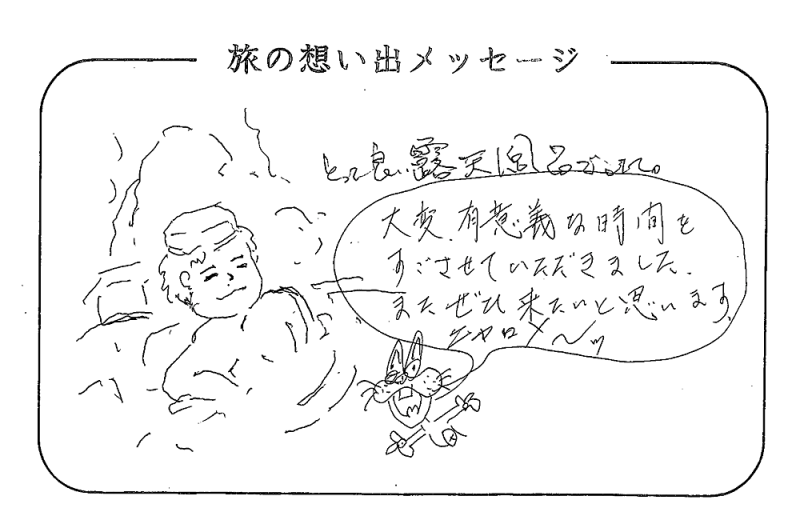 旅の想い出メッセージ
とっても良い露天風呂でした。
大変有意義な時間を
すごさせていただきました。
またぜひ来たいと思います。
ニャロメ〜ッ